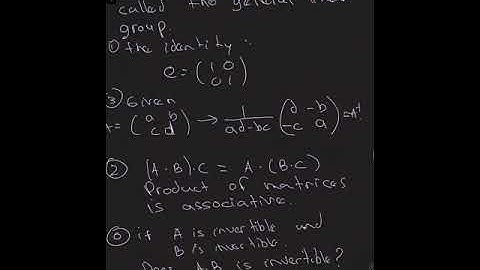 called the general linear
group.
① the identity :
e = ( 1 0
0 1 )
③ Given
A = ( a b
c d ) → 1 / ad-bc ( d -b
-c a ) = A⁻¹
② (A·B)·C = A·(B·C)
Product of matrices
is associative.
⓪ if A is invertible and
B is invertible.
Does A.B is invertible?